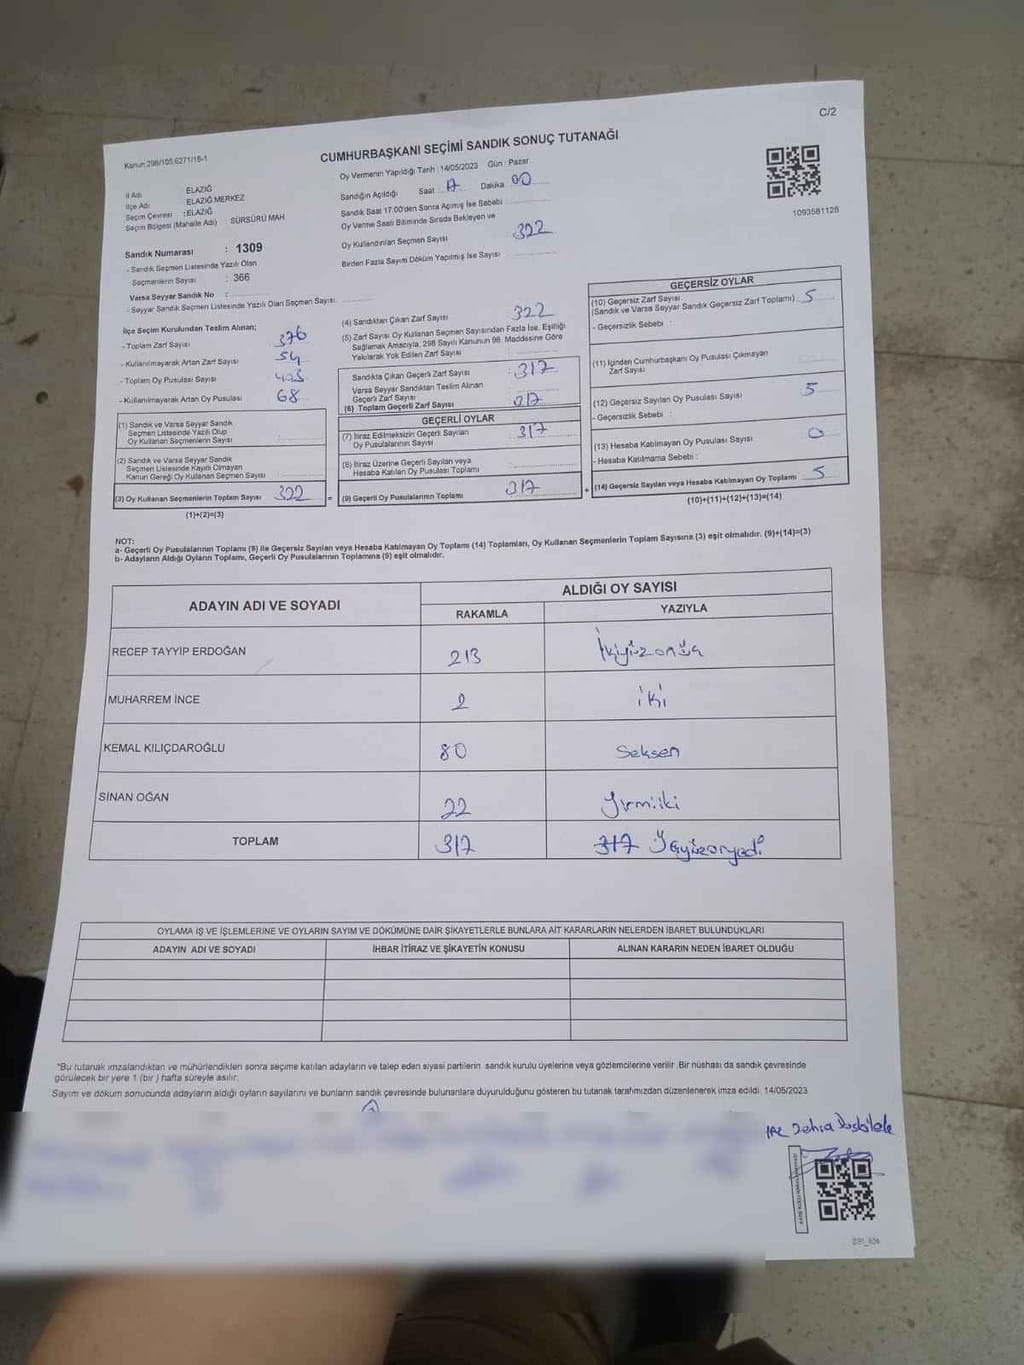 C/2
Kanun:298/105 6271/18-1
CUMHURBAŞKANI SEÇİMİ SANDIK SONUÇ TUTANAĞI
Oy Vermenin Yapıldığı Tarih : 14/05/2023 Gün : Pazar
İl Adı ELAZIĞ
İlçe Adı ELAZIĞ MERKEZ
Seçim Çevresi : ELAZIĞ
Seçim Bölgesi (Mahalle Adı) SÜRSÜRÜ MAH
Sandık Numarası : 1309
- Sandık Seçmen Listesinde Yazılı Olan
Seçmenlerin Sayısı : 366
Varsa Seyyar Sandık No :
- Seyyar Sandık Seçmen Listesinde Yazılı Olan Seçmen Sayısı:
Sandığın Açıldığı Saat 17 Dakika 00
Sandık Saat 17:00'den Sonra Açımış İse Sebebi :
Oy Verme Saati Bitiminde Sırada Bekleyen ve
Oy Kullandırılan Seçmen Sayısı : 322
Birden Fazla Sayım Döküm Yapılmış İse Sayısı
1093581128
İlçe Seçim Kurulundan Teslim Alınan;
- Toplam Zarf Sayısı 376
- Kullanılmayarak Artan Zarf Sayısı 54
- Toplam Oy Pusulası Sayısı
- Kullanılmayarak Artan Oy Pusulası 68
(1) Sandık ve Varsa Seyyar Sandık
Seçmen Listesinde Yazılı Olup
Oy Kullanan Seçmenlerin Sayısı
(2) Sandık ve Varsa Seyyar Sandık
Seçmen Listesinde Kayıtlı Olmayan
Kanun Gereği Oy Kullanan Seçmen Sayısı
(3) Oy Kullanan Seçmenlerin Toplam Sayısı 322 =
(1)+(2)=(3)
(4) Sandıktan Çıkan Zarf Sayısı 322
(5) Zarf Sayısı Oy Kullanan Seçmen Sayısından Fazla İse, Eşitliği
Sağlamak Amacıyla, 298 Sayılı Kanunun 98. Maddesine Göre
Yakılarak Yok Edilen Zarf Sayısı
Sandıkta Çıkan Geçerli Zarf Sayısı : 317
Varsa Seyyar Sandıktan Teslim Alınan
Geçerli Zarf Sayısı
(6) Toplam Geçerli Zarf Sayısı 317
GEÇERLİ OYLAR
(7) İtiraz Edilmeksizin Geçerli Sayılan
Oy Pusulalarının Sayısı 317
(8) İtiraz Üzerine Geçerli Sayılan veya
Hesaba Katılan Oy Pusulası Toplamı
(9) Geçerli Oy Pusulalarının Toplamı 317 +
GEÇERSİZ OYLAR
(10) Geçersiz Zarf Sayısı
(Sandık ve Varsa Seyyar Sandık Geçersiz Zarf Toplamı) 5
- Geçersizlik Sebebi :
(11) İçinden Cumhurbaşkanı Oy Pusulası Çıkmayan
Zarf Sayısı
(12) Geçersiz Sayılan Oy Pusulası Sayısı 5
- Geçersizlik Sebebi :
(13) Hesaba Katılmayan Oy Pusulası Sayısı 0
- Hesaba Katılmama Sebebi :
(14) Geçersiz Sayılan veya Hesaba Katılmayan Oy Toplamı 5
(10)+(11)+(12)+(13)=(14)
NOT:
a- Geçerli Oy Pusulalarının Toplamı (9) ile Geçersiz Sayılan veya Hesaba Katılmayan Oy Toplamı (14) Toplamları, Oy Kullanan Seçmenlerin Toplam Sayısına (3) eşit olmalıdır. (9)+(14)=(3)
b- Adayların Aldığı Oyların Toplamı, Geçerli Oy Pusulalarının Toplamına (9) eşit olmalıdır.
ADAYIN ADI VE SOYADI ALDIĞI OY SAYISI
RAKAMLA YAZIYLA
RECEP TAYYİP ERDOĞAN 213 İkiyüzonüç
MUHARREM İNCE 2 iki
KEMAL KILIÇDAROĞLU 80 Seksen
SİNAN OĞAN 22 Yirmiiki
TOPLAM 317 317 Üçyüzonyedi
OYLAMA İŞ VE İŞLEMLERİNE VE OYLARIN SAYIM VE DÖKÜMÜNE DAİR ŞİKAYETLERLE BUNLARA AİT KARARLARIN NELERDEN İBARET BULUNDUKLARI
ADAYIN ADI VE SOYADI İHBAR İTİRAZ VE ŞİKAYETİN KONUSU ALINAN KARARIN NEDEN İBARET OLDUĞU
*Bu tutanak imzalandıktan ve mühürlendikten sonra seçime katılan adayların ve talep eden siyasi partilerin sandık kurulu üyelerine veya gözlemcilerine verilir. Bir nüshası da sandık çevresinde
görülecek bir yere 1 (bir) hafta süreyle asılır.
Sayım ve döküm sonucunda adayların aldığı oyların sayılarını ve bunların sandık çevresinde bulunanlara duyurulduğunu gösteren bu tutanak tarafımızdan düzenlenerek imza edildi. 14/05/2023